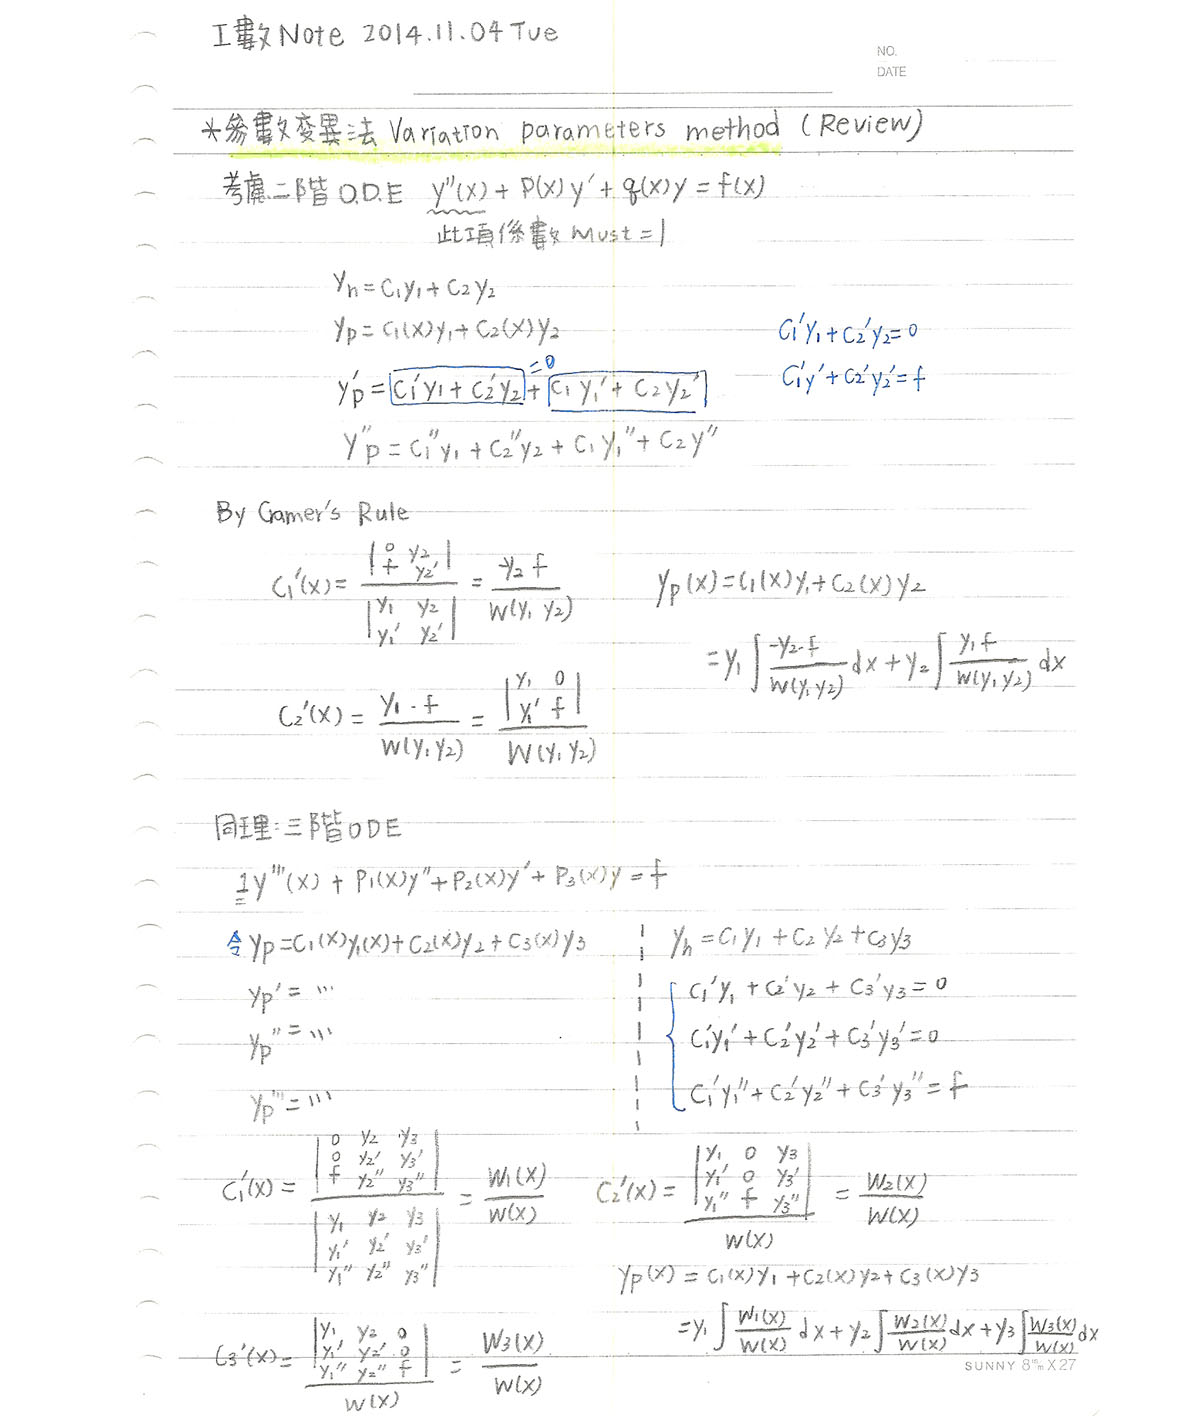 工數Note 2014.11.04 Tue
NO.
DATE
*參數变異法 Variation parameters method (Review)
考慮二階O.D.E y''(x) + P(x)y' + q(x)y = f(x)
此項係數 Must = 1
yh = C1y1 + C2y2
yp = C1(x)y1 + C2(x)y2
C1'y1 + C2'y2 = 0
=0
yp' = C1'y1 + C2'y2 + C1y1' + C2y2'
C1'y' + C2'y2' = f
y''p = C1''y1 + C2''y2 + C1y1'' + C2y''
By Cramer's Rule
C1'(x) = |0 y2; f y2'| / |y1 y2; y1' y2'| = -y2 f / W(y1 y2)
yp(x) = C1(x)y1 + C2(x)y2
= y1 ∫ -y2·f / W(y1,y2) dx + y2 ∫ y1 f / W(y1,y2) dx
C2'(x) = y1·f / W(y1,y2) = |y1 0; y1' f| / W(y1,y2)
同理:三階ODE
1y'''(x) + P1(x)y'' + P2(x)y' + P3(x)y = f
令 yp = C1(x)y1(x) + C2(x)y2 + C3(x)y3
yh = C1y1 + C2y2 + C3y3
yp' = ...
C1'y1 + C2'y2 + C3'y3 = 0
yp'' = ...
C1'y1' + C2'y2' + C3'y3' = 0
yp''' = ...
C1'y1'' + C2'y2'' + C3'y3'' = f
C1'(x) = |0 y2 y3; 0 y2' y3'; f y2'' y3''| / |y1 y2 y3; y1' y2' y3'; y1'' y2'' y3''| = W1(x) / W(x)
C2'(x) = |y1 0 y3; y1' 0 y3'; y1'' f y3''| / W(x) = W2(x) / W(x)
yp(x) = C1(x)y1 + C2(x)y2 + C3(x)y3
= y1 ∫ W1(x)/W(x) dx + y2 ∫ W2(x)/W(x) dx + y3 ∫ W3(x)/W(x) dx
C3'(x) = |y1 y2 0; y1' y2' 0; y1'' y2'' f| / W(x) = W3(x) / W(x)
SUNNY 8m/m X 27